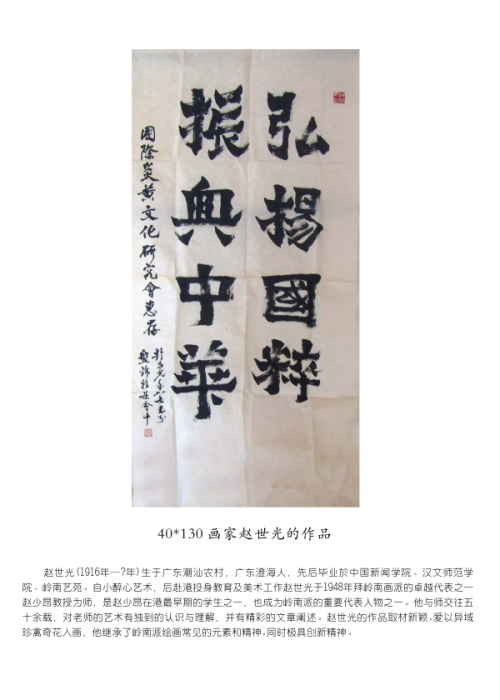 弘揚國粹
振興中華
國際炎黃文化研究會惠存
40*130 画家赵世光的作品
赵世光(1916年—?年)生于广东潮汕农村，广东澄海人，先后毕业於中国新闻学院、汉文师范学
院、岭南艺苑。自小醉心艺术，后赴港投身教育及美术工作赵世光于1948年拜岭南画派的卓越代表之一
赵少昂教授为师，是赵少昂在港最早期的学生之一，也成为岭南派的重要代表人物之一。他与师交往五
十余载，对老师的艺术有独到的认识与理解，并有精彩的文章阐述。赵世光的作品取材新颖，爱以异域
珍禽奇花入画，他继承了岭南派绘画常见的元素和精神，同时极具创新精神。